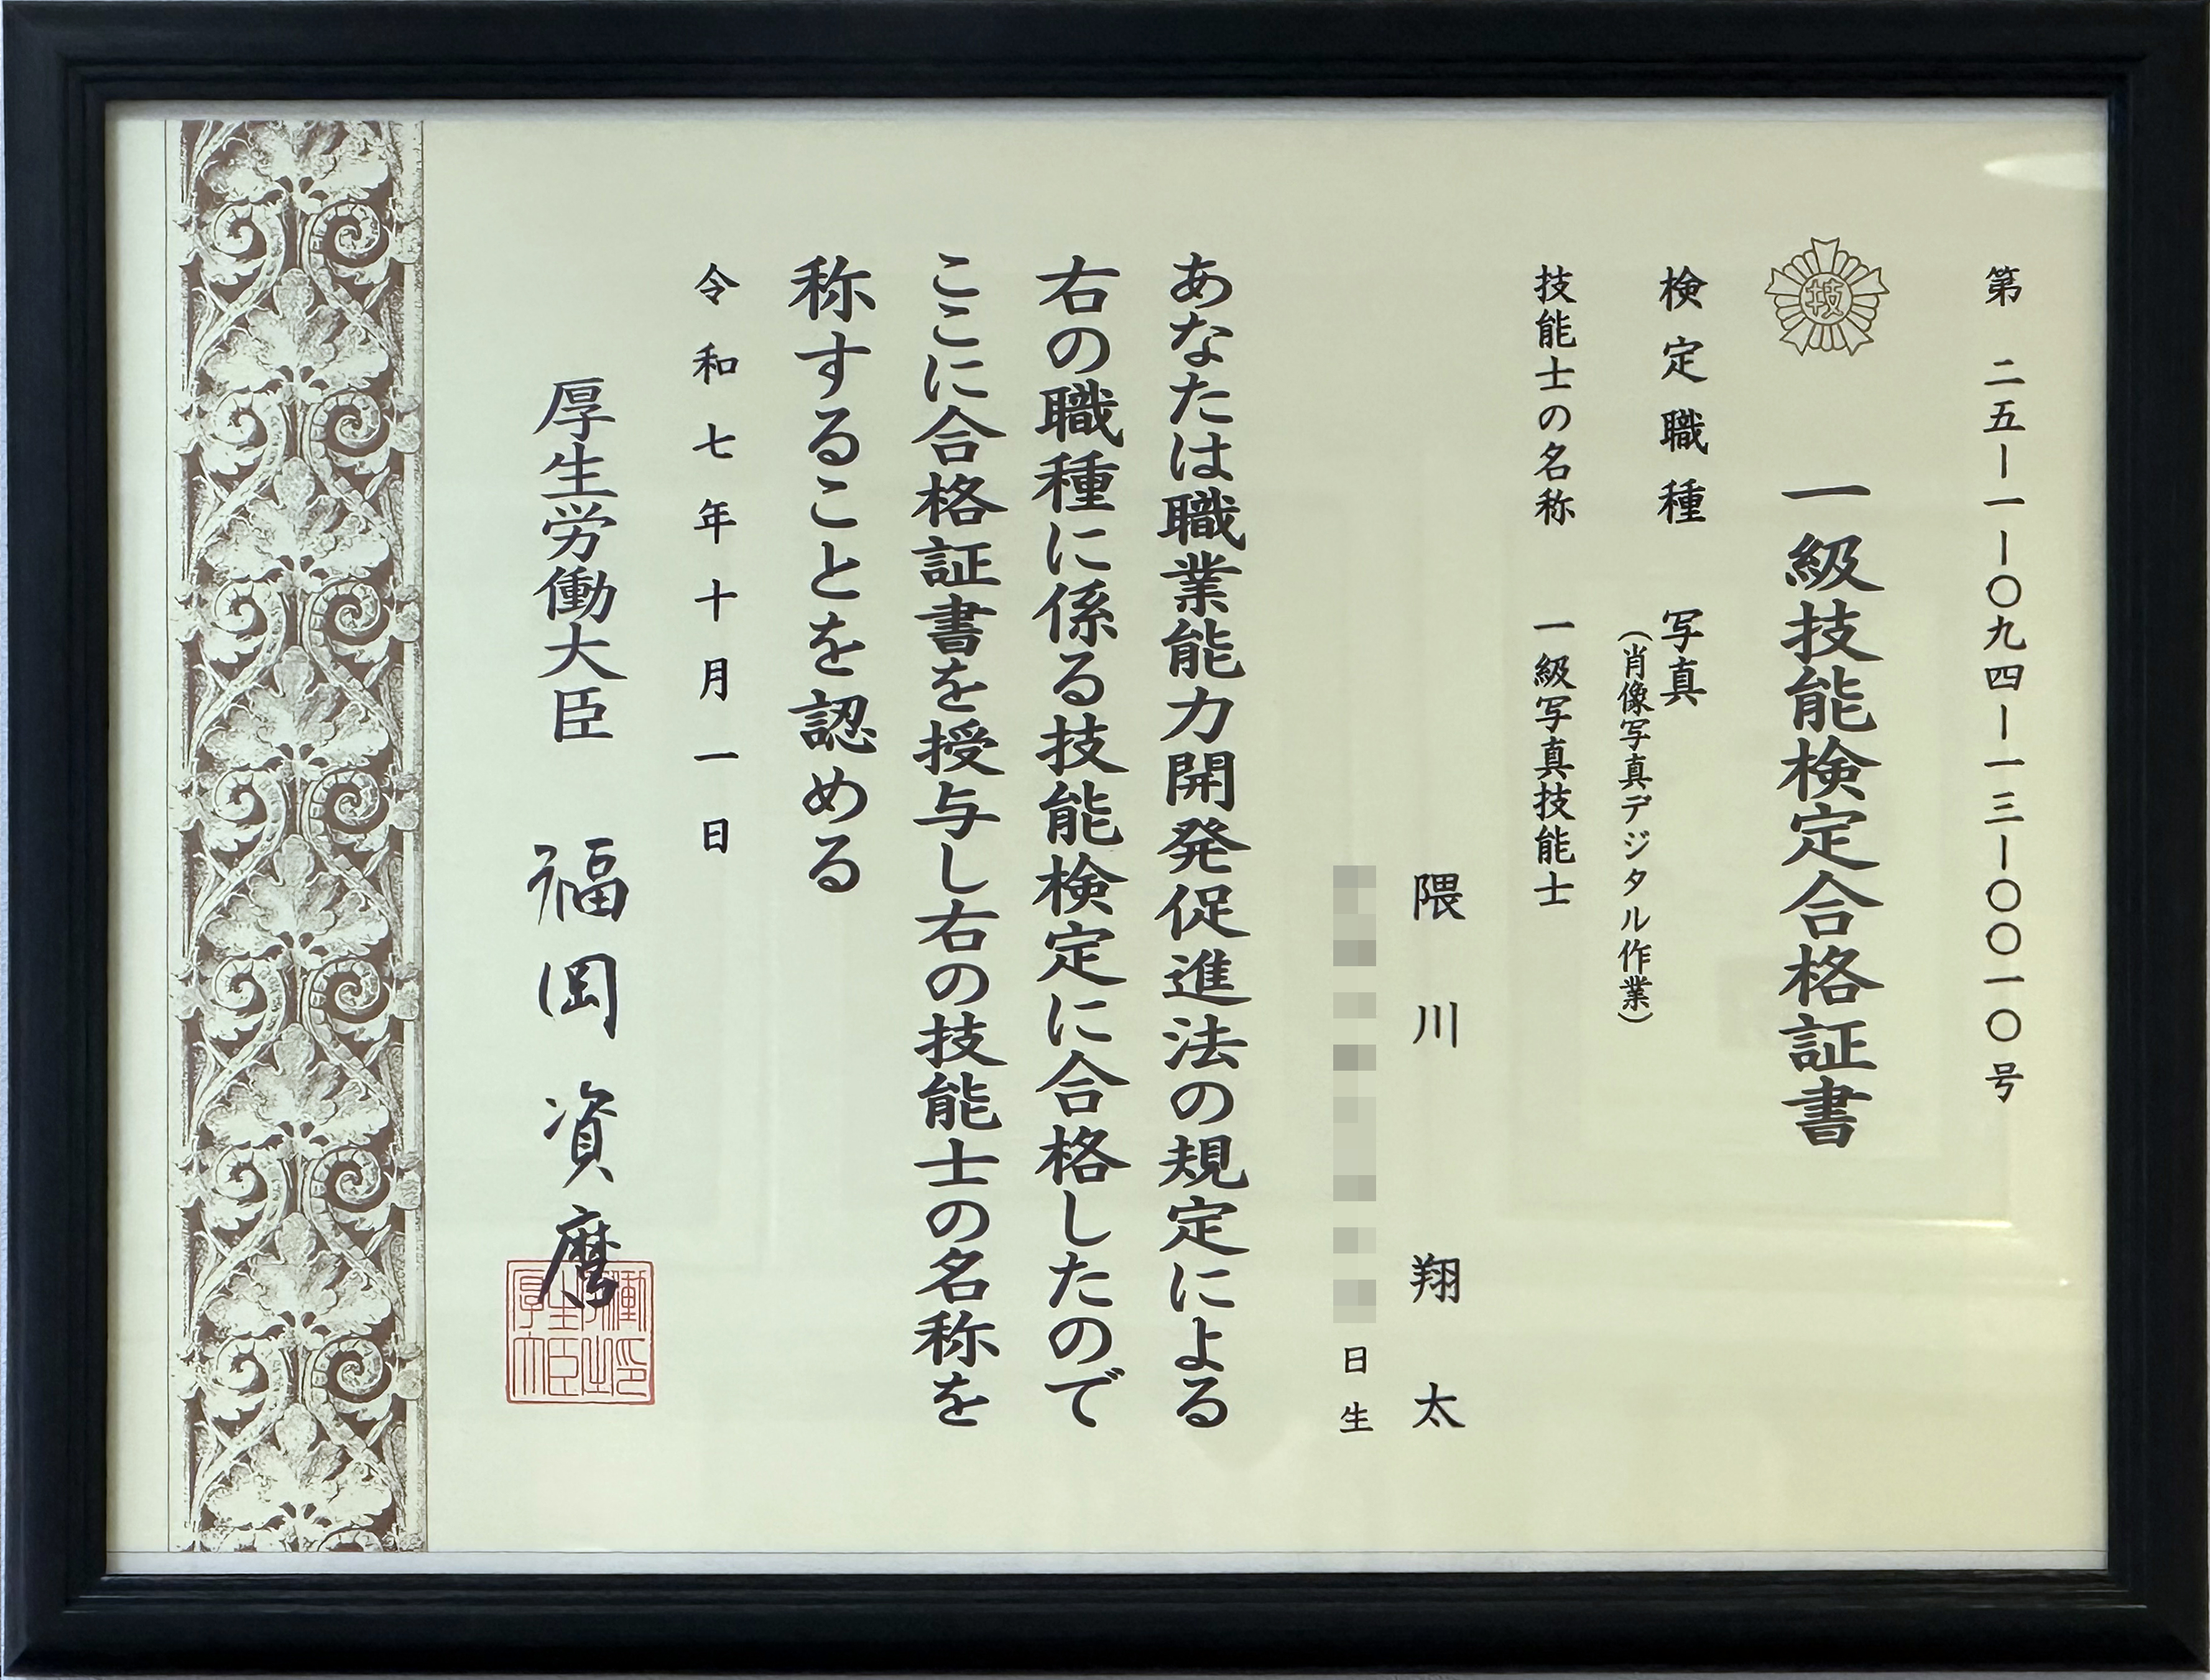 第 二五―一―〇九四―一三―〇〇一〇号
技
一級技能検定合格証書
検定職種 写真
(肖像写真デジタル作業)
技能士の名称 一級写真技能士
隈川 翔太
日生
あなたは職業能力開発促進法の規定による
右の職種に係る技能検定に合格したので
ここに合格証書を授与し右の技能士の名称を
称することを認める
令和七年十月一日
厚生労働大臣 福岡資麿